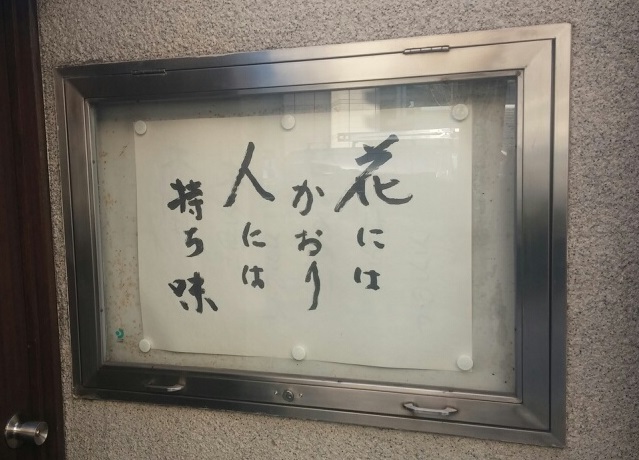 花には
かおり
人には
持ち味